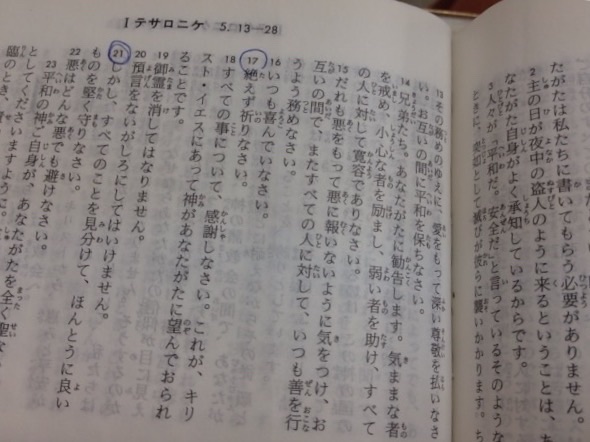 I テサロニケ 5. 13—28
たがたは私たちに書いてもらう必要がありません。
2 主の日が夜中の盗人のように来るということは、
なたがた自身がよく承知しているからです。
3 人々が「平和だ。安全だ」と言っているそのような
ときに、突如として滅びが彼らに襲いかかります。ち
13 その務めのゆえに、愛をもって深い尊敬を払いなさ
い。お互いの間に平和を保ちなさい。
14 兄弟たち。あなたがたに勧告します。気ままな者
を戒め、小心な者を励まし、弱い者を助け、すべて
の人に対して寛容でありなさい。
15 だれも悪をもって悪に報いないように気をつけ、お
互いの間で、またすべての人に対して、いつも善を行
うよう務めなさい。
16 いつも喜んでいなさい。
17 絶えず祈りなさい。
18 すべての事について、感謝しなさい。これが、キリ
スト・イエスにあって神があなたがたに望んでおられ
ることです。
19 御霊を消してはなりません。
20 預言をないがしろにしてはいけません。
21 しかし、すべてのことを見分けて、ほんとうに良い
ものを堅く守りなさい。
22 悪はどんな悪でも避けなさい。
23 平和の神ご自身が、あなたがたを全く聖な
としてくださいますように。
臨のとき、